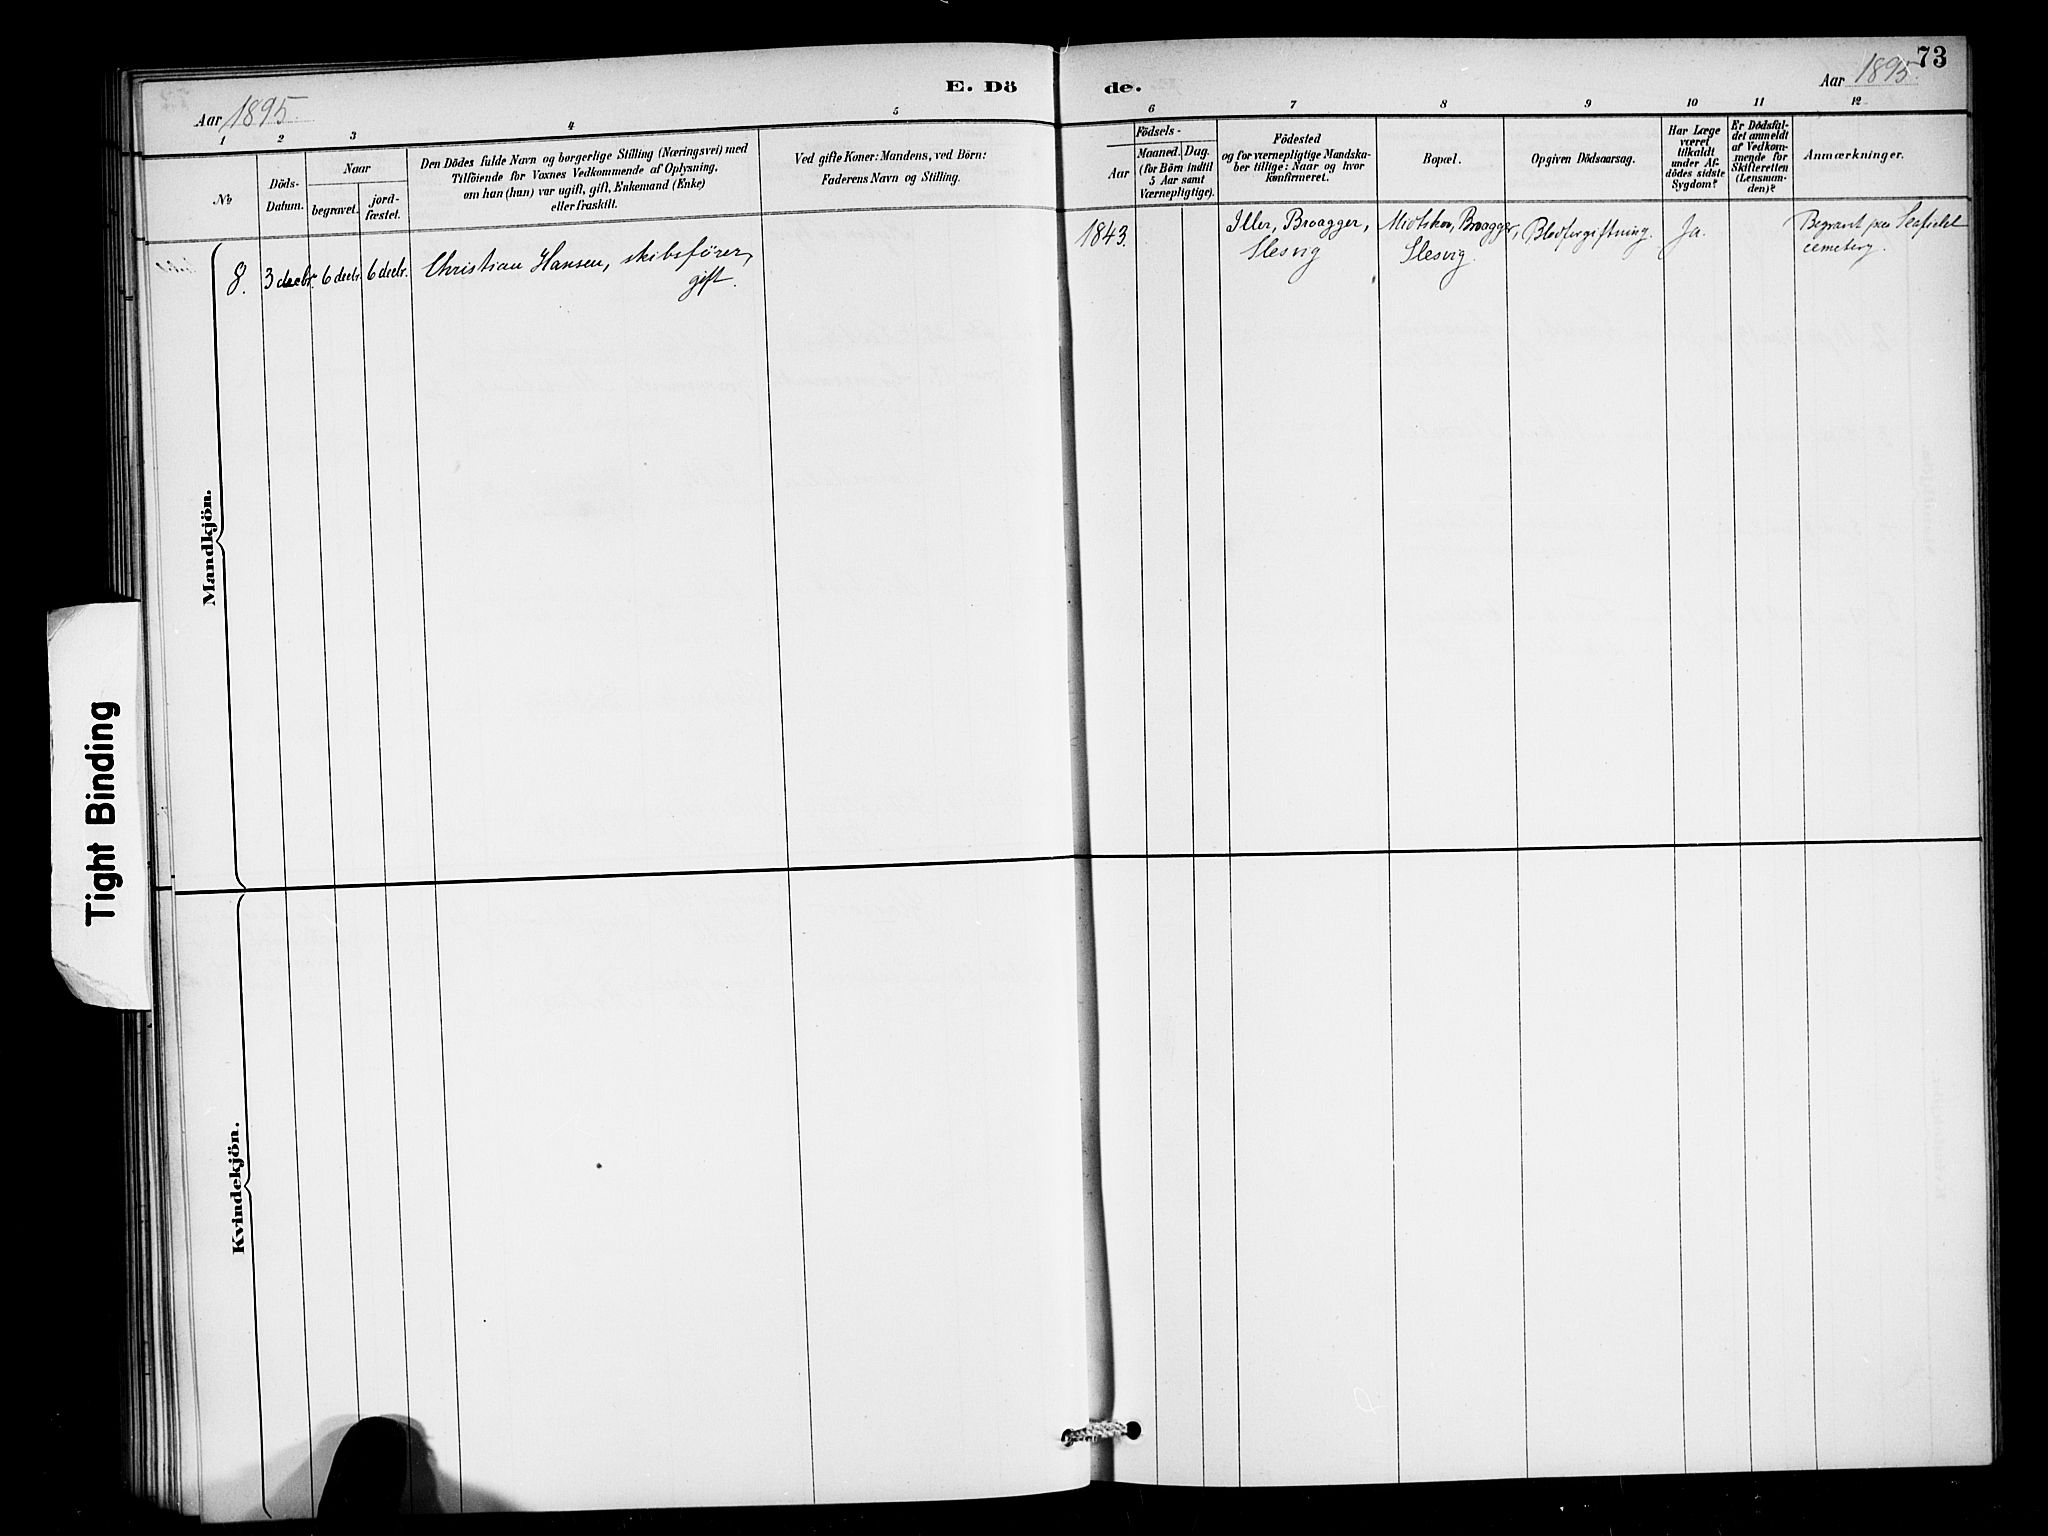 73
E. Dö
de.
Aar 1895.
Aar 1895.
1
2
3
4
5
6
7
8
9
10
11
12
No
Döds-
Datum.
Naar
begravet.
jord-
fæstet.
Den Dödes fulde Navn og borgerlige Stilling (Næringsvei) med
Tilföiende for Voxnes Vedkommende af Oplysning,
om han (hun) var ugift, gift, Enkemand (Enke)
eller fraskilt.
Ved gifte Koner: Mandens, ved Börn:
Faderens Navn og Stilling.
Födsels-
Aar
Maaned.
Dag.
(for Börn indtil
5 Aar samt
Værnepligtige).
Födested
og for værnepligtige Mandska-
ber tillige: Naar og hvor
konfirmeret.
Bopæl.
Opgiven Dödsaarsag.
Har Læge
været
tilkaldt
under Af-
dödes sidste
Sygdom?
Er Dödsfal-
det anmeldt
af Vedkom-
mende for
Skifteretten
(Lensman-
den)?
Anmærkninger.
Mandkjön.
8.
3 decbr.
6 decbr.
6 decbr.
Christian Hansen, skibsförer,
gift.
1843.
Iller, Broagger,
Slesvig
Broagger,
Slesvig.
Blodforgiftning.
Ja.
Begravet paa Seafield
cemetery.
Kvindekjön.
Tight Binding